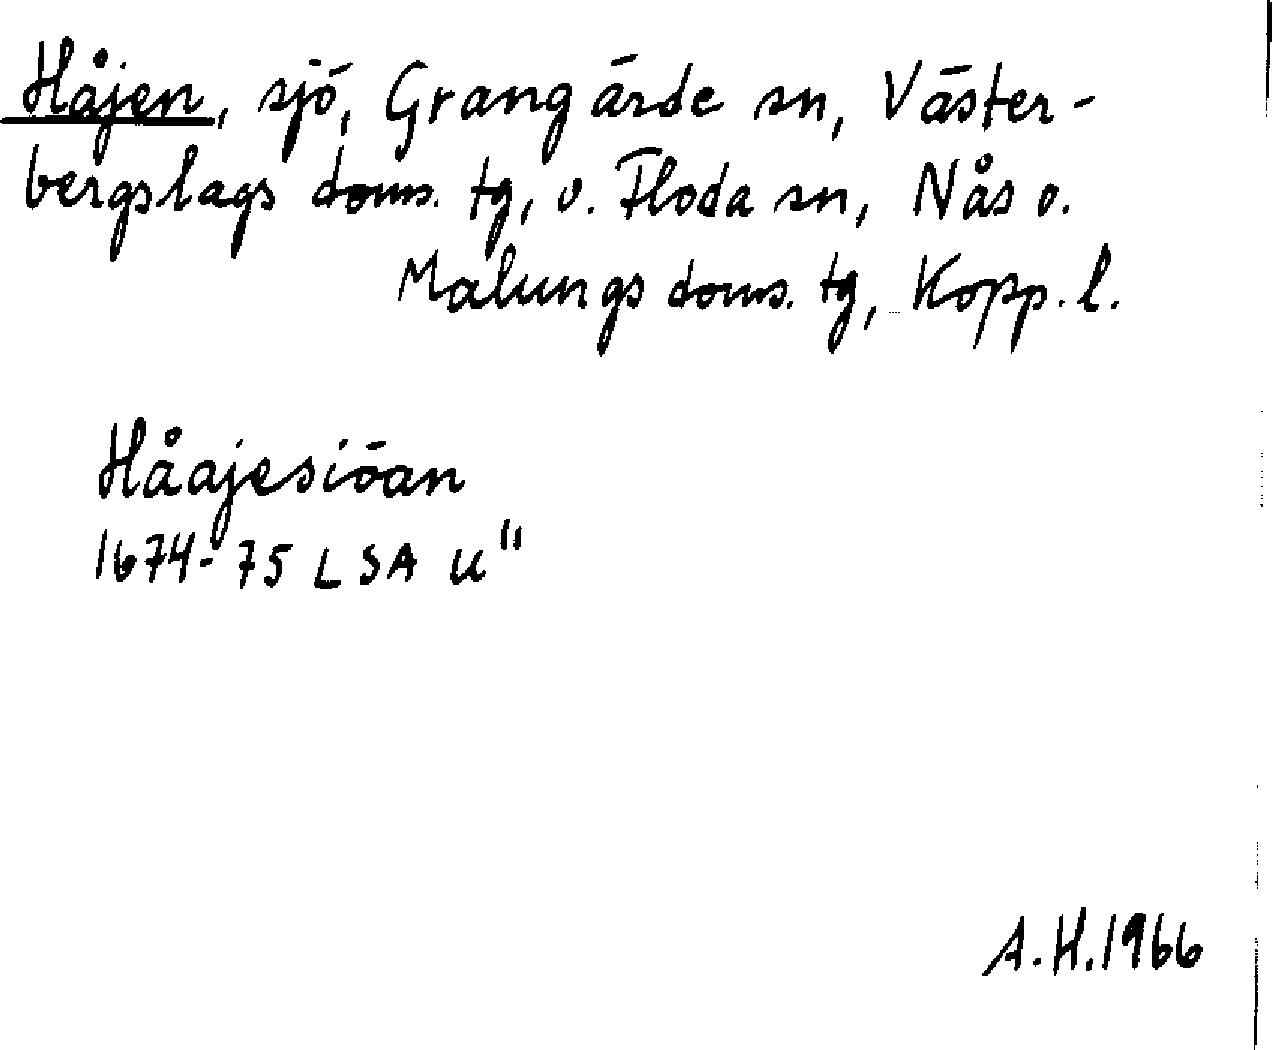 Håjen, sjö, Grangärde sn, Väster-
bergslags doms. tg, o. Floda sn, Nås o.
Malungs doms. tg, Kopp. l.
Håajesiöan
1674-75 LSA U"
A.H.1966